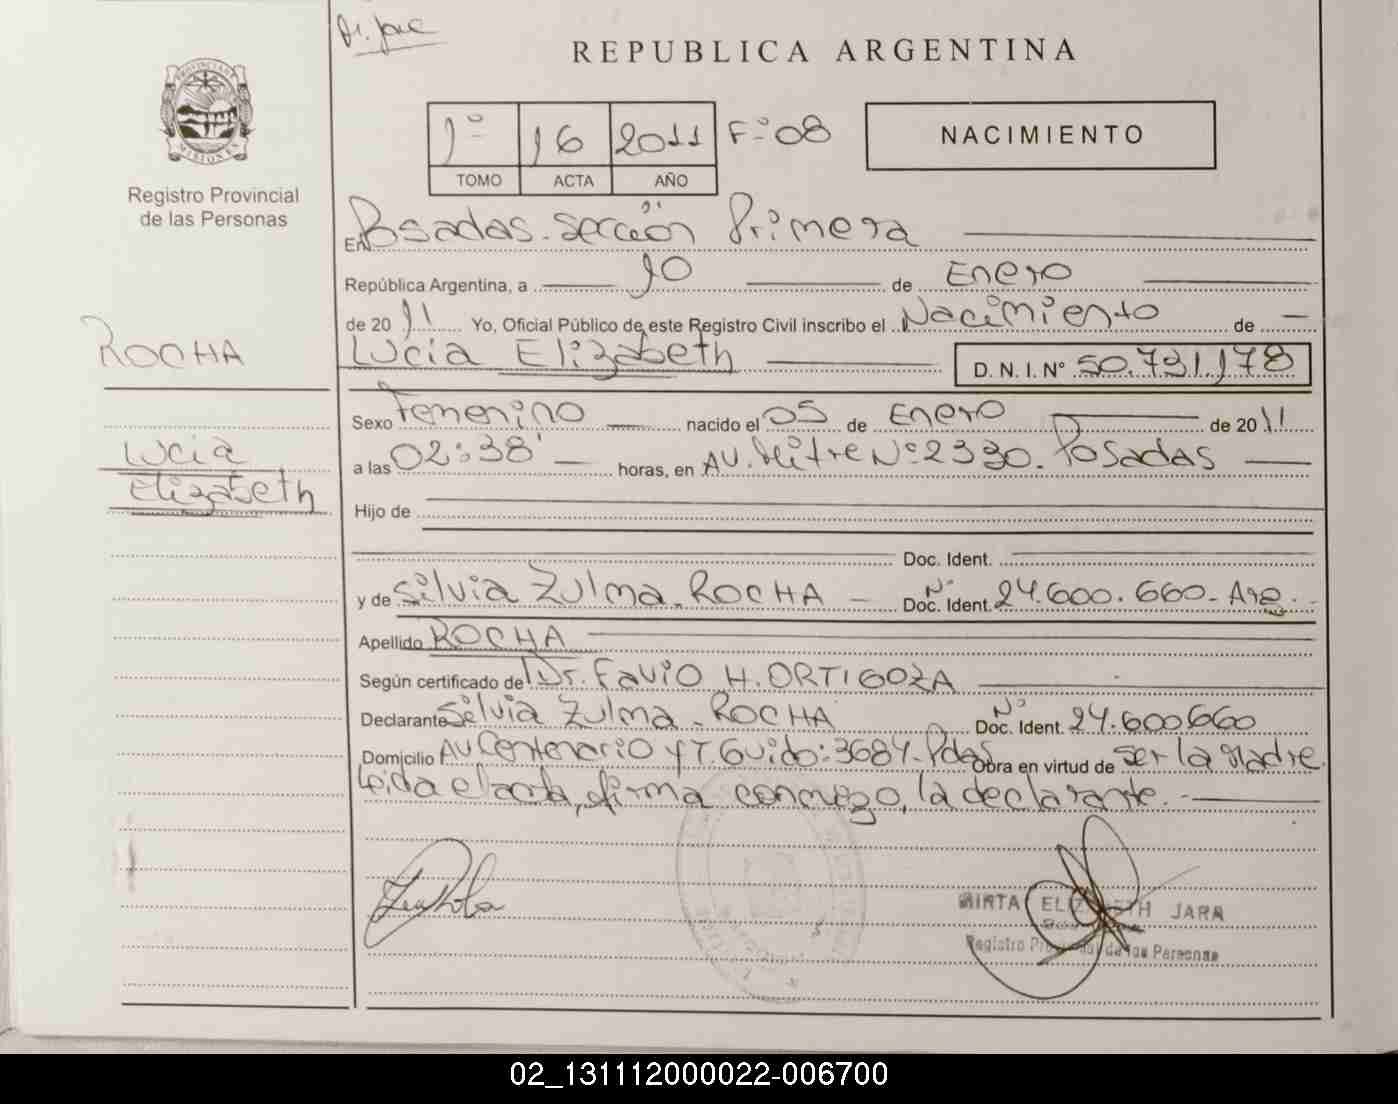 REPUBLICA ARGENTINA
PROVINCIA DE
MISIONES
Registro Provincial
de las Personas
1º 16 2011 Fº 08
TOMO ACTA AÑO
NACIMIENTO
En Posadas. Sección Primera
República Argentina, a 10 de Enero
de 2011 Yo, Oficial Público de este Registro Civil inscribo el Nacimiento de —
ROCHA
Lucia Elizabeth D. N. I. N° 50.731.178
Sexo Femenino nacido el 05 de Enero de 2011
Lucia
Elizabeth
a las 02:38' — horas, en AV. Mitre Nº 2330. Posadas —
Hijo de
Doc. Ident.
y de Silvia Zulma. ROCHA — Doc. Ident. Nº 24.600.660- Arg.
Apellido ROCHA
Según certificado de Dr. Favio H. ORTIGOZA
Declarante Silvia Zulma. ROCHA Doc. Ident. Nº 24.600660
Domicilio AV Centenario y T. Guido: 3684- Pdas Obra en virtud de ser la Madre.
Leida el acta, firma conmigo, la declarante. -
MIRTA ELIZABETH JARA
Registro Provincial de las Personas
02_131112000022-006700